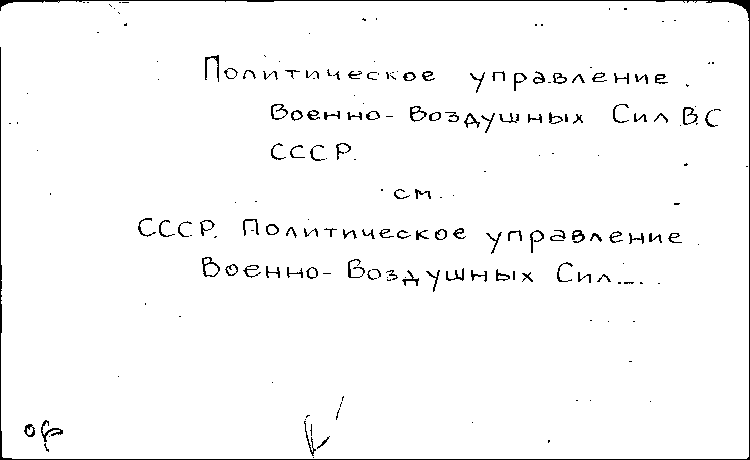 Политическое управление
Военно-Воздушных Сил ВС
СССР.
см.
СССР. Политическое управление
Военно-Воздушных Сил...